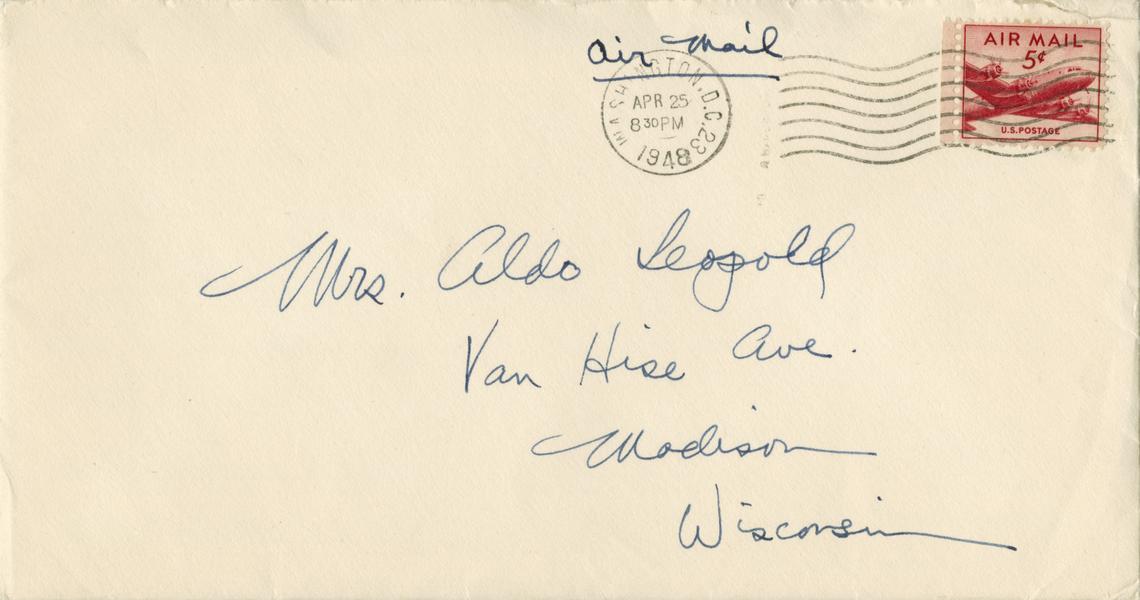 Air Mail
AIR MAIL
5¢
U.S. POSTAGE
WASHINGTON, D.C. 23
APR 25
8 30 PM
1948
Mrs. Aldo Leopold
Van Hise Ave.
Madison
Wisconsin